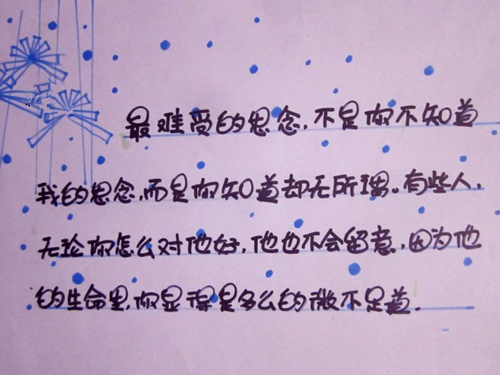 最难受的思念,不是你不知道
我的思念,而是你知道却无所谓。有些人,
无论你怎么对他好,他也不会留意,因为他
的生命里,你显得是多么的微不足道.